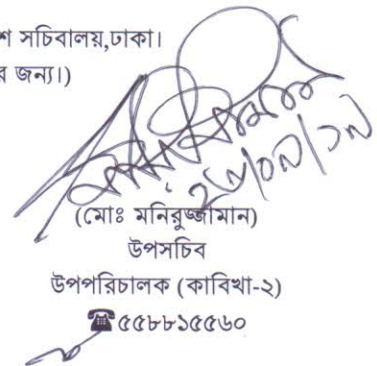 শ সচিবালয়,ঢাকা।
র জন্য।)
(মোঃ মনিরুজ্জামান)
উপসচিব
উপপরিচালক (কাবিখা-২)
☎৫৫৮৮১৫৫৬০